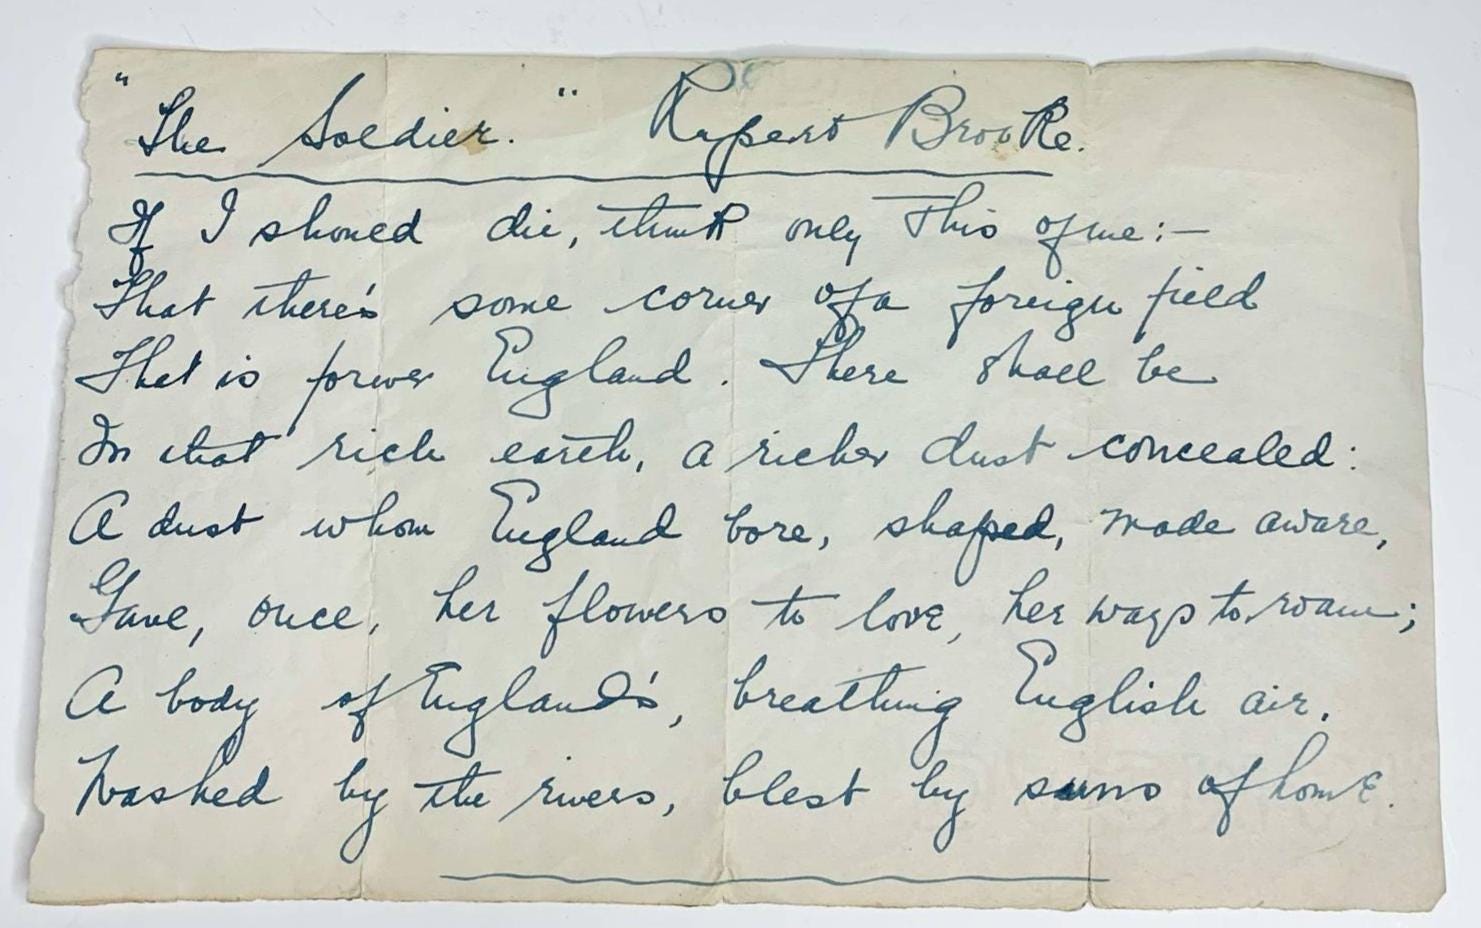 "The Soldier." Rupert Brooke.
If I should die, think only This of me:—
That there's some corner of a foreign field
That is forever England. There shall be
In that rich earth, a richer dust concealed:
A dust whom England bore, shaped, made aware,
Gave, once, her flowers to love, her ways to roam;
A body of England's, breathing English air.
Washed by the rivers, blest by suns of home.